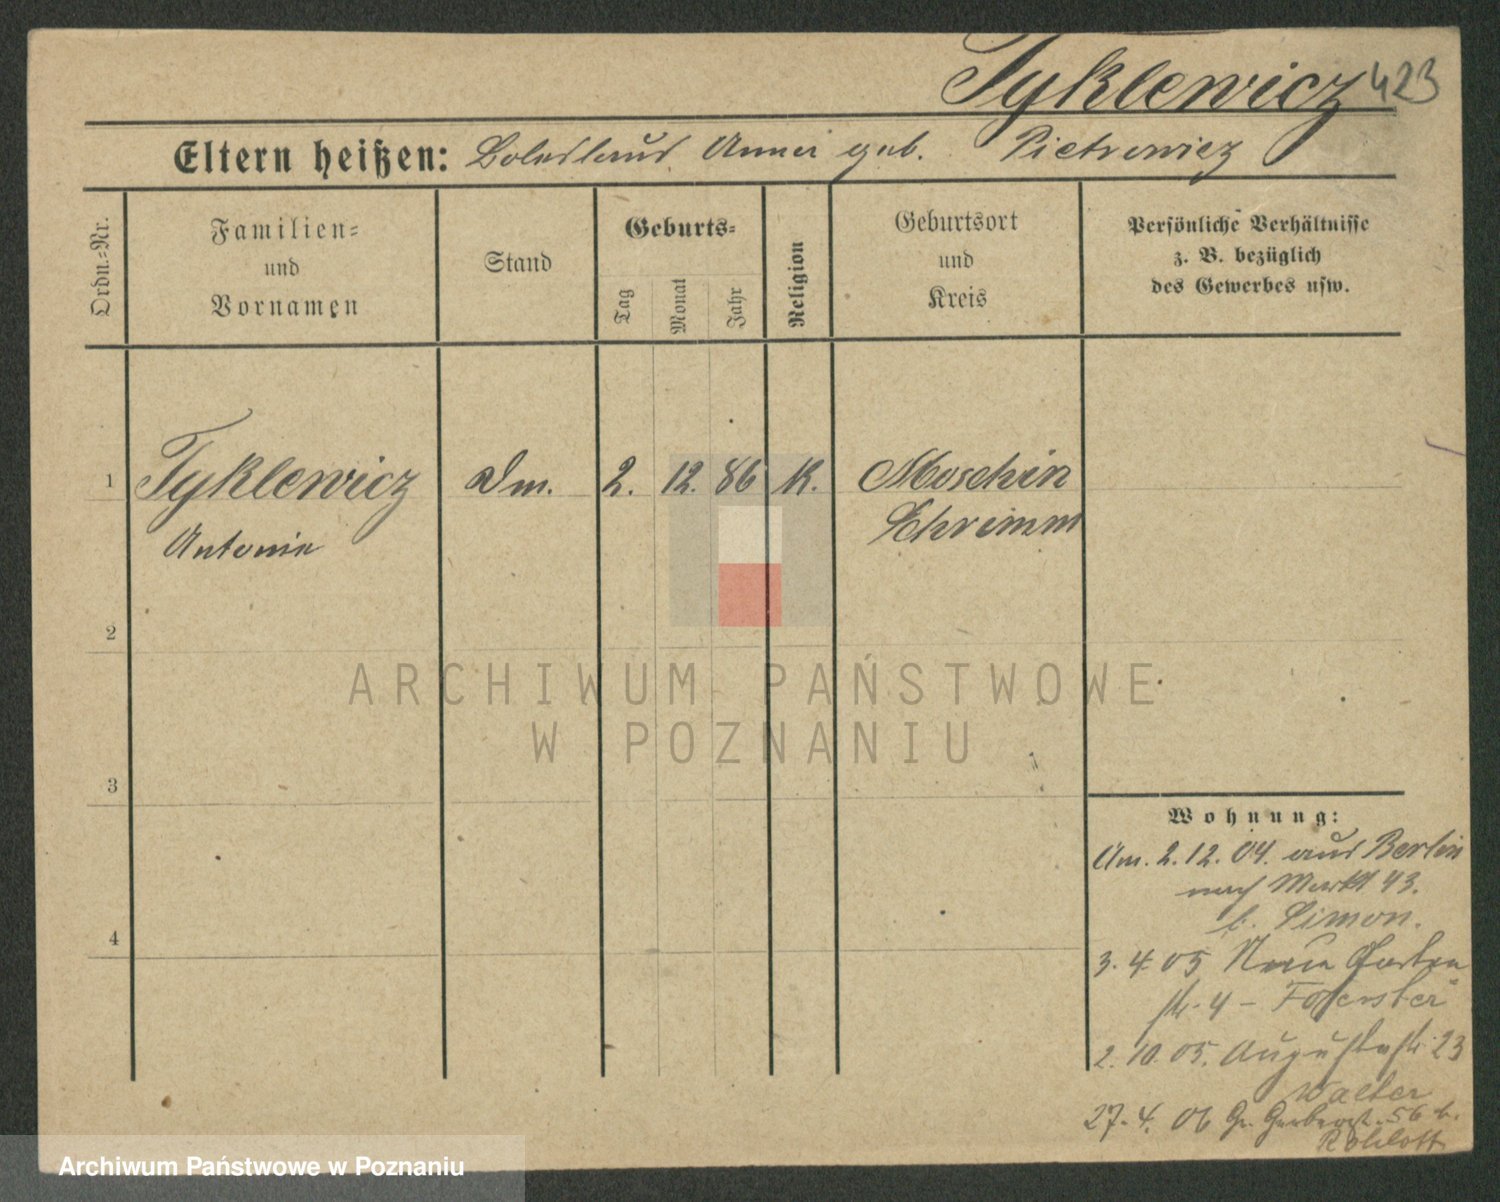 Tyklewicz 423
Eltern heißen: Boleslaus Anna geb. Pietrowicz
Ordn.-Nr.
Familien-
und
Vornamen
Stand
Geburts-
Tag
Monat
Jahr
Religion
Geburtsort
und
Kreis
Persönliche Verhältnisse
z. B. bezüglich
des Gewerbes usw.
1 Tyklewicz Dm. 2. 12. 86 K. Moschin
Antonie Schrimm
2
ARCHIWUM PAŃSTWOWE
W POZNANIU
3
Wohnung:
Am. 2. 12. 04. aus Berlin
nach Markt 43.
b. Simon.
4
3. 4. 05 Neue Garten
str. 4 - Foerster
2. 10. 05. Augustastr. 23
Walter
27. 4. 06 Gr. Gerberstr. 56 b.
Rohlott
Archiwum Państwowe w Poznaniu